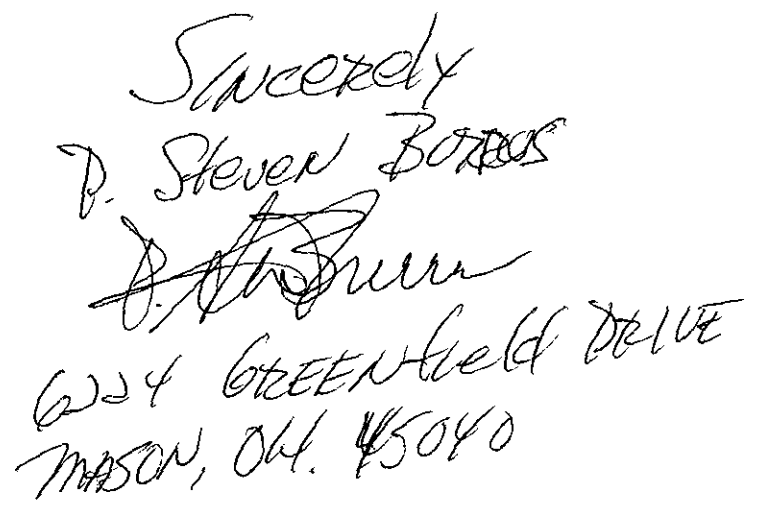 Sincerely
P. Steven
6224 GREENfield DRIVE
MASON, OH. 45040